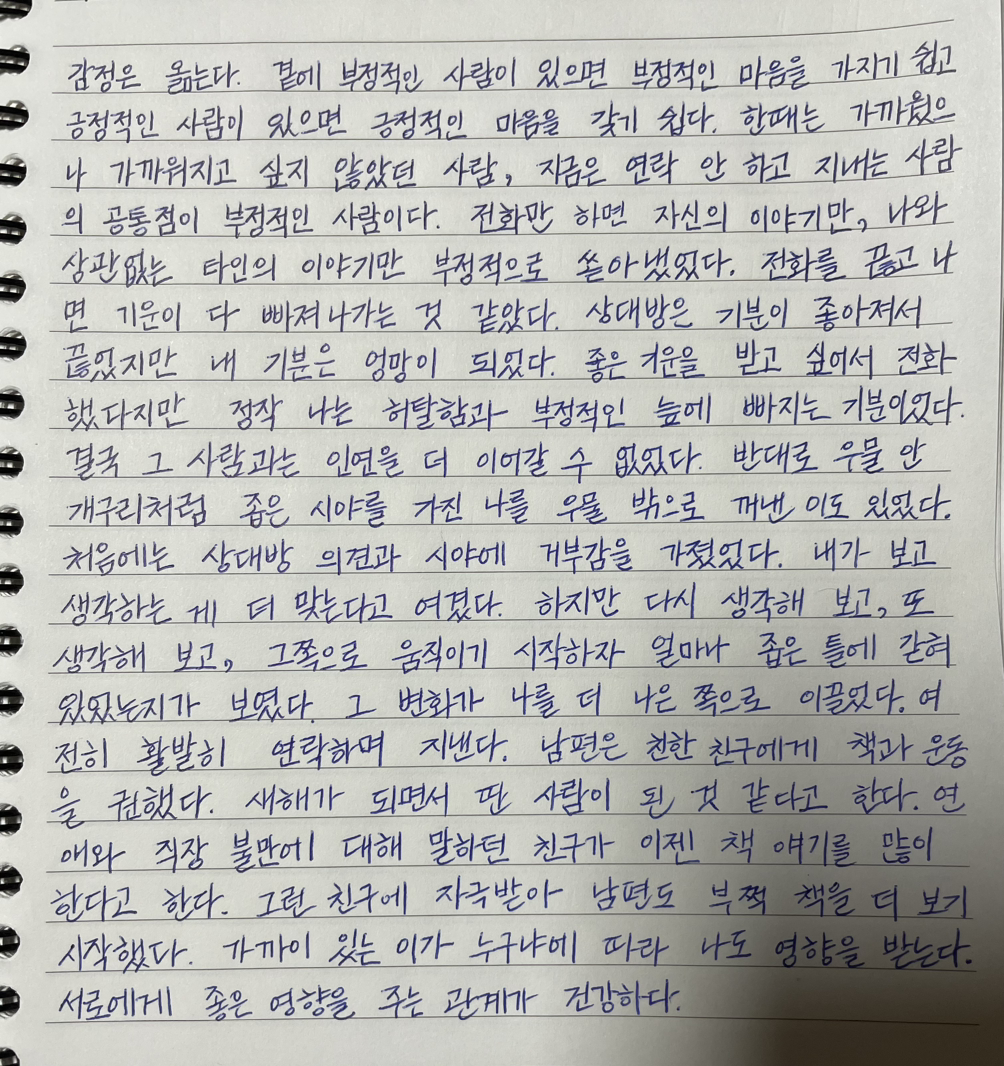 감정은 옮는다. 곁에 부정적인 사람이 있으면 부정적인 마음을 가지기 쉽고
긍정적인 사람이 있으면 긍정적인 마음을 갖기 쉽다. 한때는 가까웠으
나 가까워지고 싶지 않았던 사람, 지금은 연락 안 하고 지내는 사람
의 공통점이 부정적인 사람이다. 전화만 하면 자신의 이야기만, 나와
상관없는 타인의 이야기만 부정적으로 쏟아냈었다. 전화를 끊고 나
면 기운이 다 빠져나가는 것 같았다. 상대방은 기분이 좋아져서
끊었지만 내 기분은 엉망이 되었다. 좋은 기운을 받고 싶어서 전화
했다지만 정작 나는 허탈함과 부정적인 늪에 빠지는 기분이었다.
결국 그 사람과는 인연을 더 이어갈 수 없었다. 반대로 우물 안
개구리처럼 좁은 시야를 가진 나를 우물 밖으로 꺼낸 이도 있었다.
처음에는 상대방 의견과 시야에 거부감을 가졌었다. 내가 보고
생각하는 게 더 맞는다고 여겼다. 하지만 다시 생각해 보고, 또
생각해 보고, 그쪽으로 움직이기 시작하자 얼마나 좁은 틀에 갇혀
있었는지가 보였다. 그 변화가 나를 더 나은 쪽으로 이끌었다. 여
전히 활발히 연락하며 지낸다. 남편은 친한 친구에게 책과 운동
을 권했다. 새해가 되면서 딴 사람이 된 것 같다고 한다. 연
애와 직장 불만에 대해 말하던 친구가 이젠 책 얘기를 많이
한다고 한다. 그런 친구에 자극받아 남편도 부쩍 책을 더 보기
시작했다. 가까이 있는 이가 누구냐에 따라 나도 영향을 받는다.
서로에게 좋은 영향을 주는 관계가 건강하다.